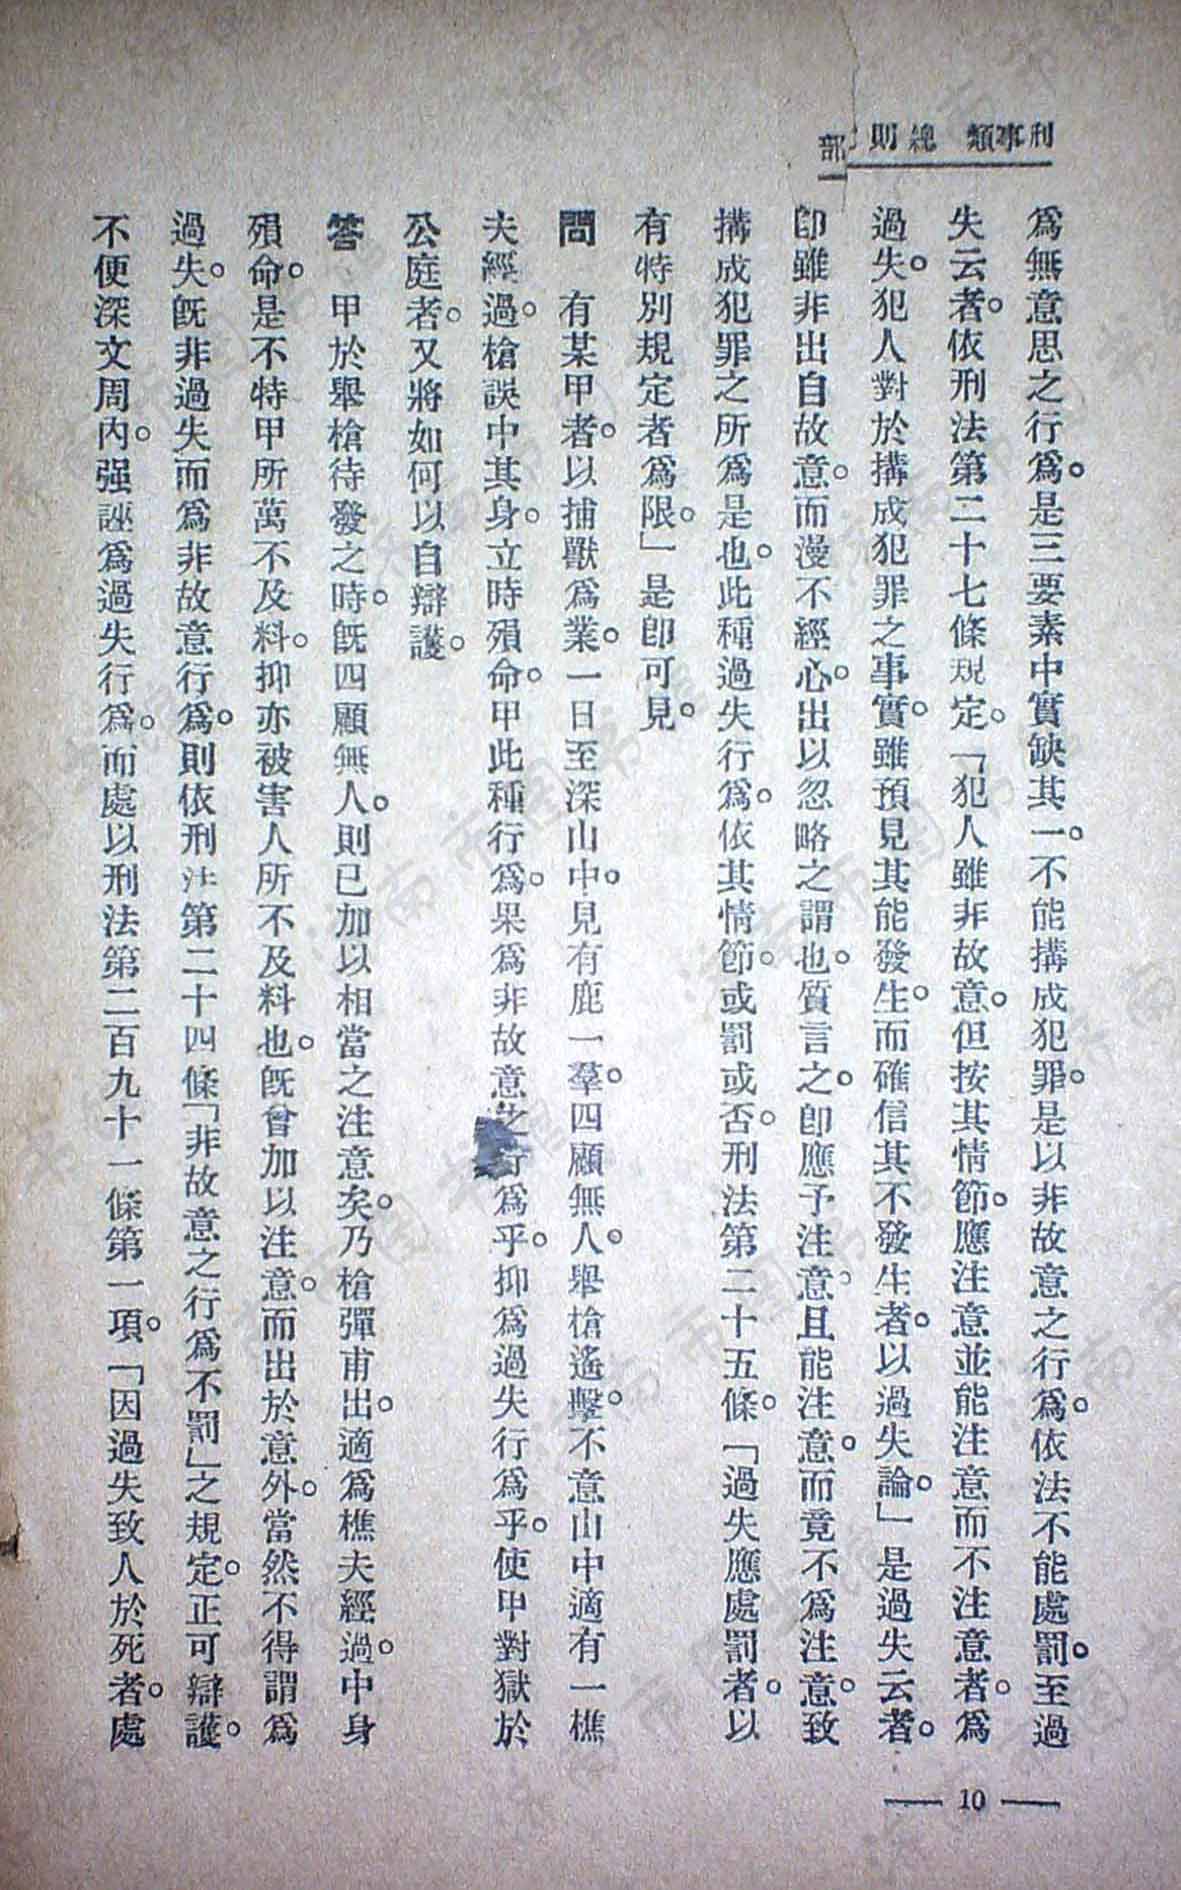 刑事類　總則部
爲無意思之行爲。是三要素中實缺其一。不能搆成犯罪。是以非故意之行爲。依法不能處罰。至過
失云者。依刑法第二十七條規定。「犯人雖非故意。但按其情節。應注意並能注意而不注意者。爲
過失。犯人對於搆成犯罪之事實。雖預見其能發生。而確信其不發生者。以過失論。」是過失云者。
卽雖非出自故意。而漫不經心。出以忽略之謂也。質言之。卽應予注意。且能注意。而竟不爲注意。致
搆成犯罪之所爲是也。此種過失行爲。依其情節。或罰或否。刑法第二十五條。「過失應處罰者。以
有特別規定者爲限。」是卽可見。
問　有某甲者。以捕獸爲業。一日至深山中。見有鹿一羣。四顧無人。舉槍遙擊。不意山中適有一樵
夫經過。槍誤中其身。立時殞命。甲此種行爲。果爲非故意之行爲乎。抑爲過失行爲乎。使甲對獄於
公庭者。又將如何以自辯護。
答　甲於舉槍待發之時。旣四顧無人。則已加以相當之注意矣。乃槍彈甫出。適爲樵夫經過。中身
殞命。是不特甲所萬不及料。抑亦被害人所不及料也。旣曾加以注意。而出於意外。當然不得謂爲
過失。旣非過失而爲非故意行爲。則依刑法第二十四條「非故意之行爲不罰」之規定。正可辯護。
不便深文周內。强誣爲過失行爲。而處以刑法第二百九十一條第一項。「因過失致人於死者。處
— 10 —
济南市图书馆